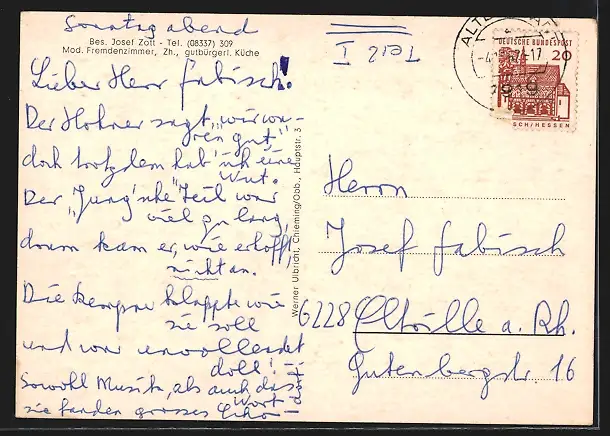 Sonntag abend
Bes. Josef Zott - Tel. (08337) 309
Mod. Fremdenzimmer, Zh., gutbürgerl. Küche
Lieber Herr Fabisch!
Der Hohner sagt, "wir wa-
ren gut"
doch trotzdem hab' ich eine
Wut.
Der "Jung'sche" Teil war
viel zu lang,
drum kam er, wie erhofft,
nicht an.
Die Kempne klappte wie
sie soll
und war unvollendet
doll!
Sowohl Musik, als auch das
Wort -
sie fanden grosses Echo -
Werner Ulbricht, Chieming/Obb., Hauptstr. 3
Teil I
DEUTSCHE BUNDESPOST
20
SCH/HESSEN
Herrn
Josef Fabisch
6228 Eltville a. Rh.
Gutenbergstr. 16